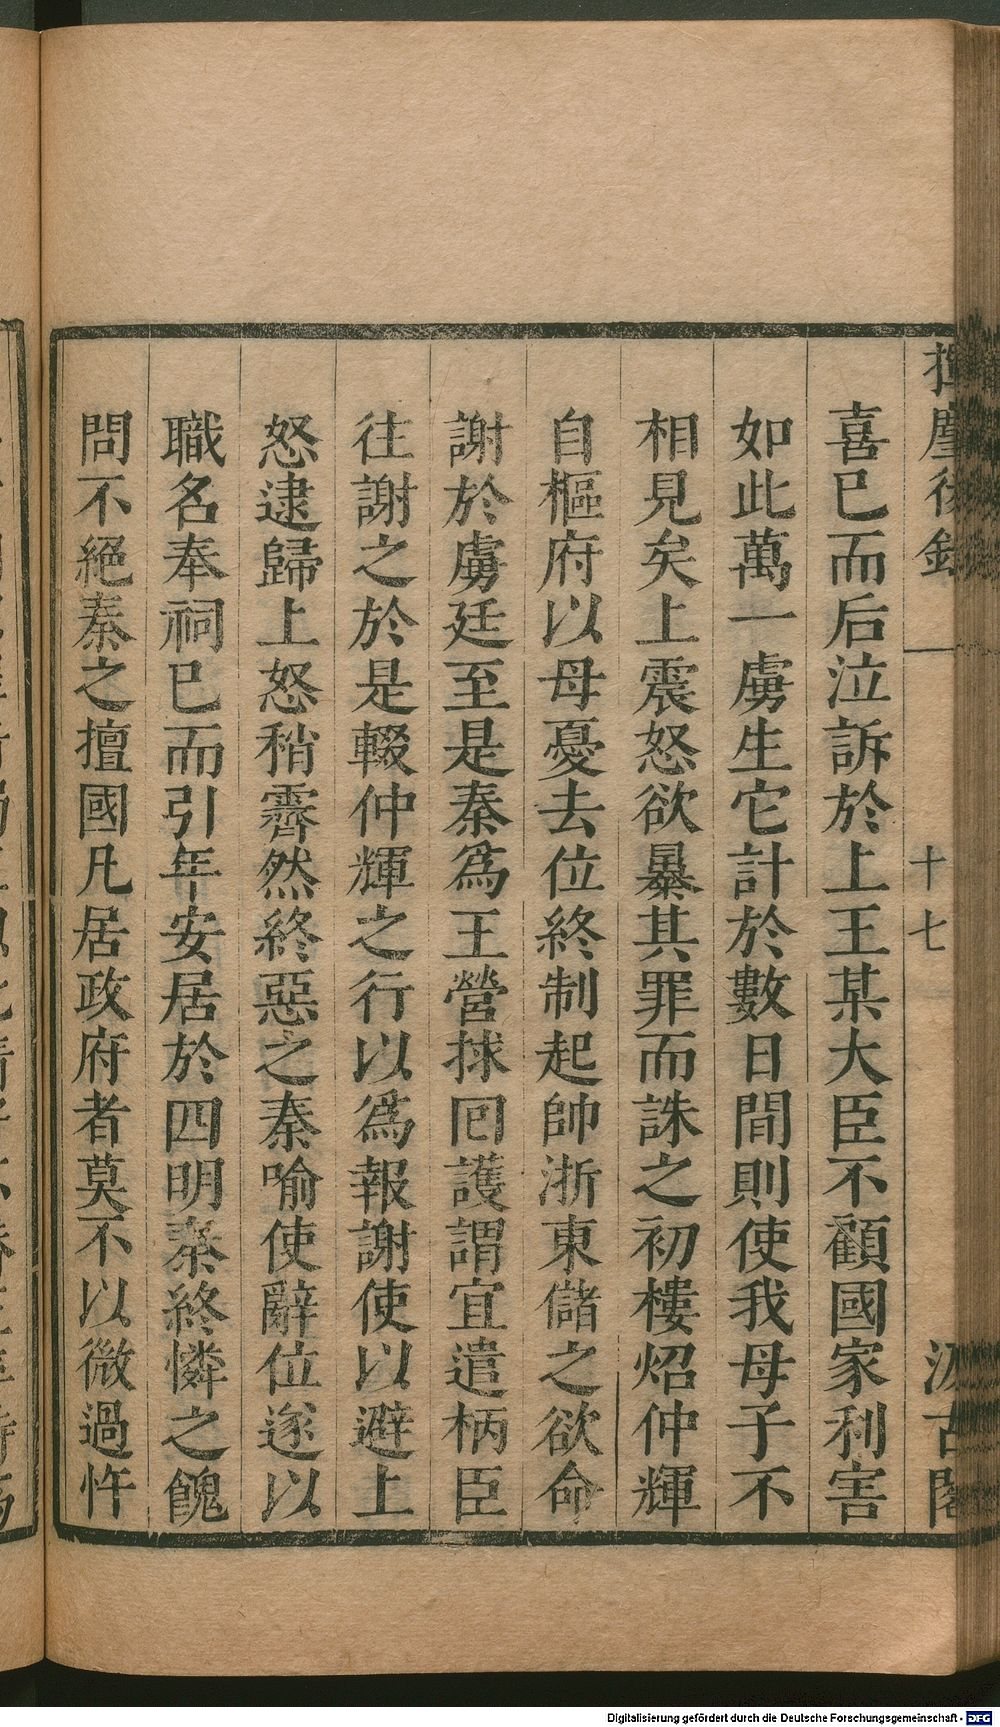 揮麈後錄
十七
汲古閣
喜已而后泣訴於上王某大臣不顧國家利害
如此萬一虜生它計於數日間則使我母子不
相見矣上震怒欲暴其罪而誅之初樓炤仲輝
自樞府以母憂去位終制起帥浙東儲之欲命
謝於虜廷至是秦爲王營捄囘護謂宜遣柄臣
往謝之於是輟仲輝之行以爲報謝使以避上
怒逮歸上怒稍霽然終惡之秦喻使辭位遂以
職名奉祠已而引年安居於四明秦終憐之餽
問不絕秦之擅國凡居政府者莫不以微過忤
Digitalisierung gefördert durch die Deutsche Forschungsgemeinschaft - DFG